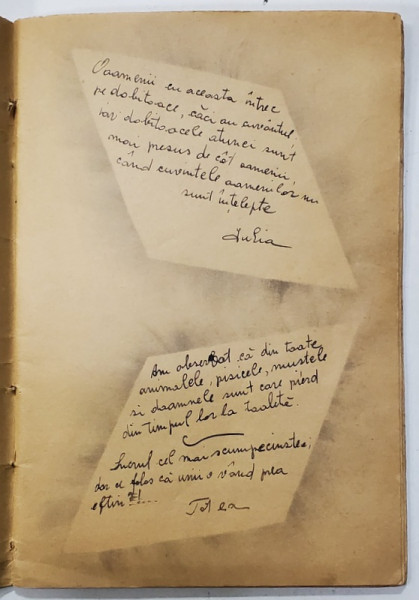 Oaamenii cu aceasta întrec
pe dobitoace, căci au cuvântul,
iar dobitoacele atunci sunt
mai presus de cât oamenii,
când cuvintele oamenilor nu
sunt înțelepte
Iulia
Am observat că din toate
animalele, pisicele, mustele
si doamnele sunt care pierd
din timpul lor la toaletă.
Lucrul cel mai scump e cinstea;
dar ce folos că unii o vând prea
eftin?!...
Tot ea